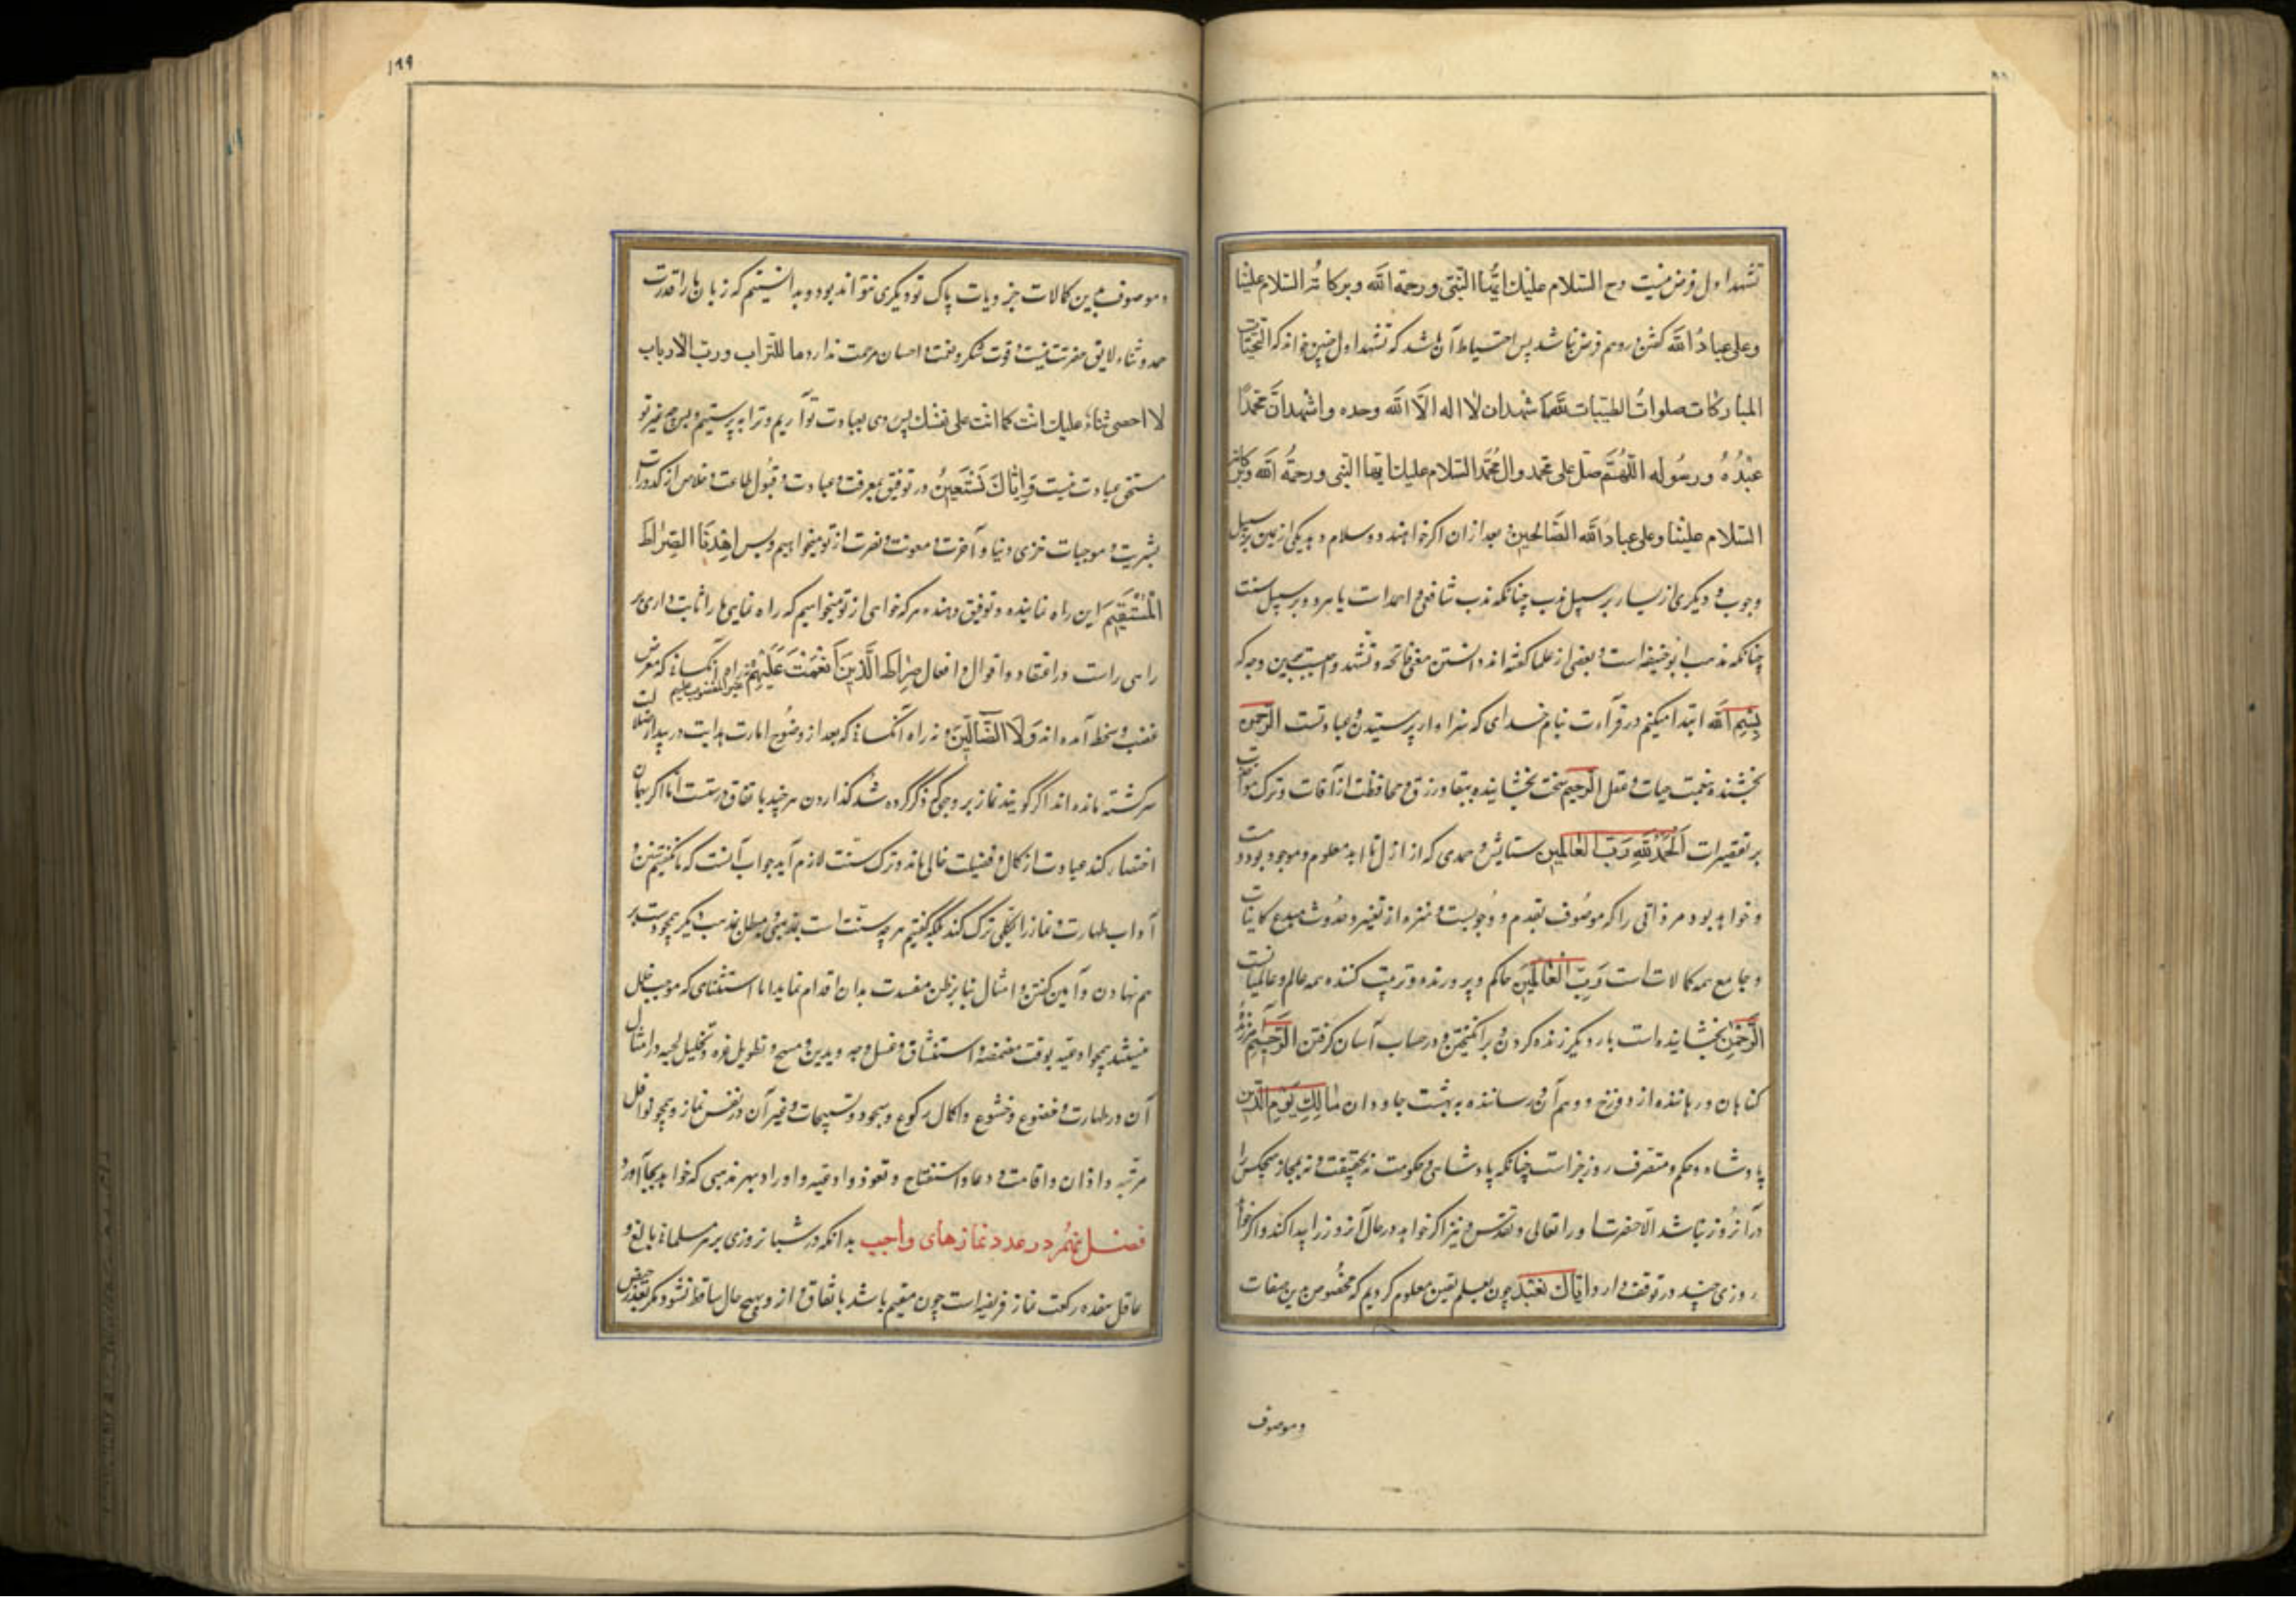 تشهد اول فرض نیست وح السلام علیك ایها النبی ورحمة الله وبركاته السلام علینا
وعلی عباد الله گفتن درو هم فرض نباشد پس احتیاط آن باشد که تشهد اول چنین خواند که التحیّات
المباركات صلوات الطیبات لله اشهد ان لا اله الّا الله وحده واشهد انّ محمّدًا
عبدُهُ ورسُوله اللّهُمَّ صلّ علی محمد وال مُحمّد السّلام علیك ایها النبی ورحمةُ الله وبركاته
السّلام علینا وعلی عباد الله الصّالحین بعد از ان اگر خواهند دو سلام دهد یکی از یمین بر سبیل
وجوب و دیگری از یسار بر سبیل ندب چنانکه مذهب شافعی و احمد است یا هر دو بر سبیل سنت
چنانکه مذهب ابو حنیفه است و بعضی از علما گفته اند دانستن معنی فاتحه و تشهد واجبست بدین وجه که
بِسْمِ الله ابتدا میکنم در قرآءت بنام خدای که سزاوار پرستیدن و عبادتست الرّحمن
بخشنده نعمت حیات و عقل الرّحیم سخت بخشاینده ببقا و رزق و محافظت از آفات و ترک مواخذت
بر تقصیرات اَلْحَمْدُ لِلّٰهِ رَبِّ العٰالَمین ستایش و حمدی که از ازل تا ابد معلوم و موجود بود و هست
و خواهد بود مر ذاتی را که موصُوف بقدم و وجُوبست و منزه از تغیر و حدُوث مبدع کاینات
و جامع همه کمالات است رَبِّ الْعٰالَمِینَ حاکم و پرورنده و تربیت کننده همه عالم و عالمیانست
الرَّحْمٰنِ بخشاینده است بار دیگر زنده کردن و برانگیختن و در حساب آسان گرفتن الرَّحیمِ آمرزنده
گناهان و رهاننده از دوزخ و وهم آن و رساننده به بهشت جاودان مٰالِكِ یَوْمِ الدّین
پادشاه و حکم و متصرف روز جزاست چنانکه پادشاهی و حکومت نه بحقیقت و نه بمجاز هیچکس را
در آنروز نباشد الّا حضرت او را تعالی و تقدس و نیز اگر خواهد در حال آنروز را پیدا کند و اگر خواهد
روزی چند در توقف دارد اِیّاكَ نَعْبُدُ چون بعلم یقین معلوم کردیم که مخصُوص بدین صفات
وموصوف
۱۹۹
وموصوف بدین کمالات جز ذات پاک تو دیگری نتواند بود و بدانستیم که زبان ما را قدرت
حمد و ثناء لایق حضرتت نیست و قوت شکر و نعمت و احسان مرحمت ندارد ما للتراب و ربّ الارباب
لا احصی ثناءً علیك انت کما اثنت علی نفسك پس روی بعبادت تو آریم و ترا به پرستیم و بس چه غیر تو
مستحق عبادت نیست وَاِیّٰاكَ نَسْتَعِینُ و در توفیق معرفت و عبادت و قبُول طاعت و خلاص از کدورات
بشریت و موجبات خزی دنیا و آخرت و معونت و نصرت از تو میخواهیم و بس اِهْدِنَا الصِّرٰاطَ
الْمُسْتَقِیمَ این راه نماینده و توفیق دهنده هر که خواهی از تو میخواهیم که راه نمایی ما را ثابت داری بر
راهی راست در اعتقاد و اقوال و افعال صِرٰاطَ الَّذِینَ اَنْعَمْتَ عَلَیْهِمْ نه راه آنکسانی که معرض
غیر المغضوب علیهم
غضب و سخط آمده اند وَلَا الضّٰآلّینَ و نه راه آنکسانی که بعد از وضُوح امارت هدایت در بیداء ضلالت
سرگشته مانده اند اگر گویند نماز بر وجهی که ذکر کرده شد گذاردن هر چند باتفاق درستست اما اگر بهمان
اختصار کند عبادت از کمال و فضیلت خالی ماند و ترک سنت لازم آید جواب آنست که ما نگفتیم سنن و
آداب طهارت و نماز را بکلّی ترک کند بلکه گفتیم هر چه سنّت است بمذهبی و مبطل بمذهب دیگر همچو دست بر
هم نهادن و آمین گفتن و امثال بنابر ظن مفسدت بدان اقدام ننماید اما استثنایی که موجب خلل
نیستند همچو ادعیه بوقت مضمضه و استنشاق و غسل وجه و یدین و مسح و تطویل غره و تخلیل لحیه و امثال
آن در طهارت و خضوع و خشوع و اکمال رکوع و سجود و تسبیحات و غیر آن در نفس نماز و همچو نوافل
مرتّبه و اذان و اقامت و دعاء استفتاح و تعوذ و ادعیه و اوراد بهر مذهبی که خواهد بجا آورد
فصل نهُم در عدد نمازهای واجب بدانکه در شبانروزی بر هر مسلمانی بالغ و
عاقل هفده رکعت نماز فریضه است چون مقیم باشد باتفاق و از و بهیچ حال ساقط نشود مگر بعذر حیض